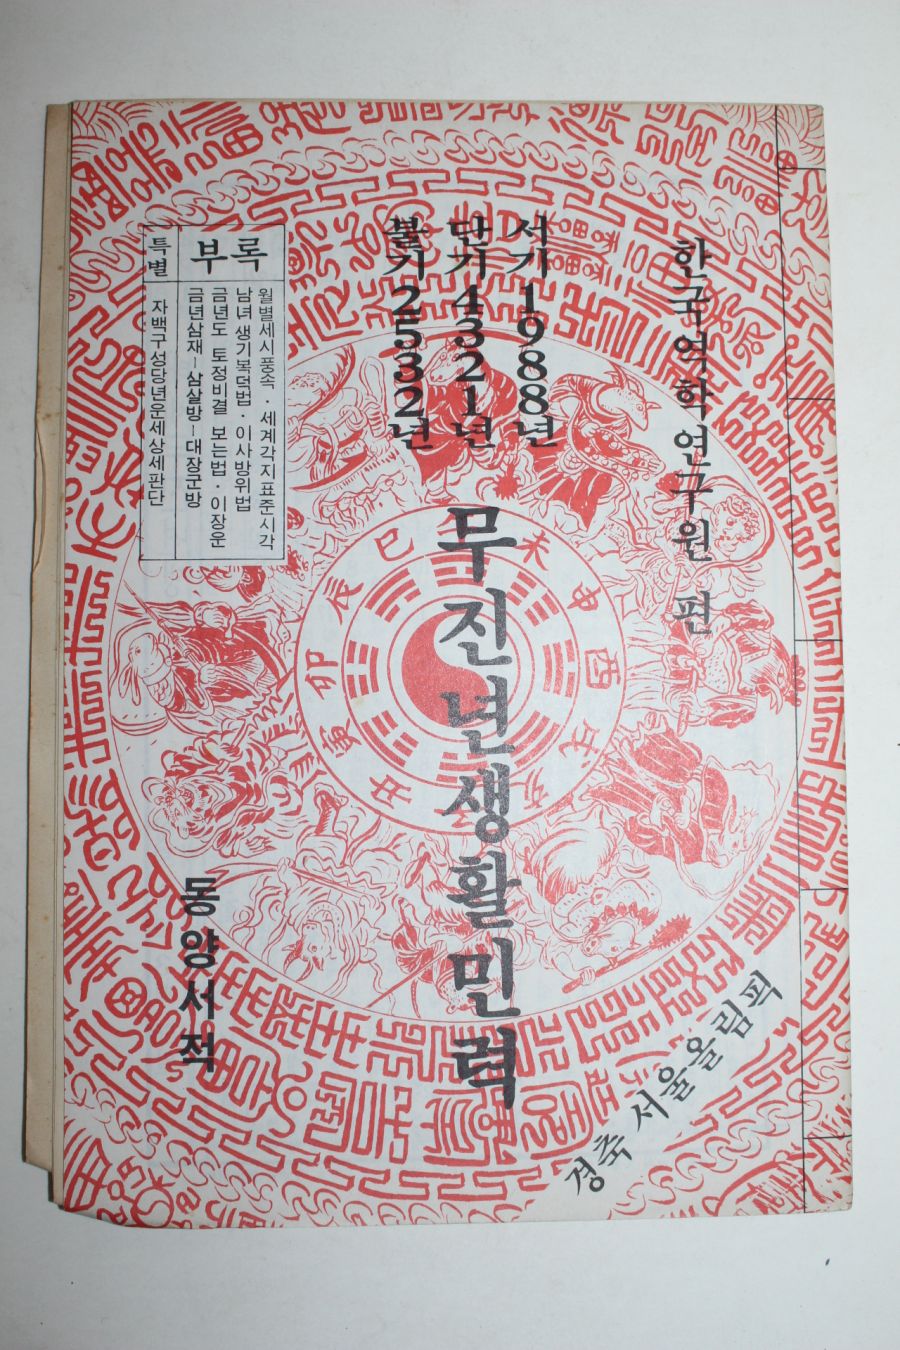 한국역학연구원 편
서기 1988년
단기 4321년
불기 2532년
무진년생활민력
부록
월별세시풍속·세계각지표준시각
남녀 생기복덕법·이사방위법
금년도 토정비결 보는법·이장운
금년삼재–삼살방–대장군방
특별
자백구성당년운세상세판단
동양서적
경축 서울올림픽
巳
未
申
酉
戌
亥
丑
寅
卯
辰